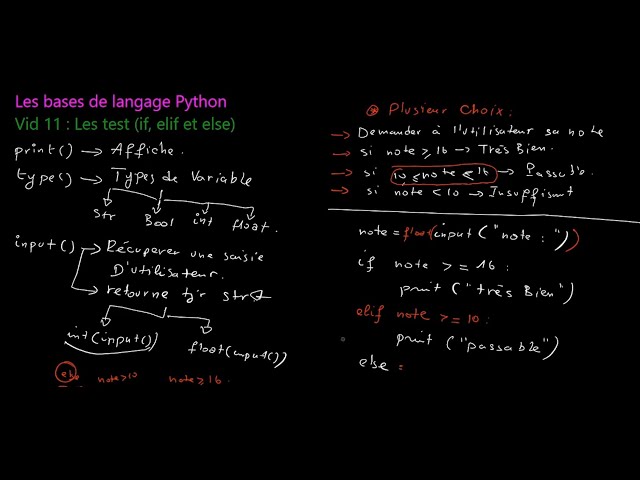 Les bases de langage Python
Vid 11 : Les test (if, elif et else)
print() → Affiche.
type() → Types de Variable
str Bool int float.
input() → Récuperer une saisie
D'utilisateur.
→ retourne tjr str
int(input()) float(input())
else note>10 note≥16.
* Plusieur choix :
→ Demander à l'utilisateur sa note
→ si note ≥ 16 → Très Bien.
→ si 10 ≤ note < 16 → Passable.
→ si note < 10 → Insuffisant
note = float(input("note : "))
if note >= 16 :
print ("très Bien")
elif note >= 10 :
print ("passable")
else :